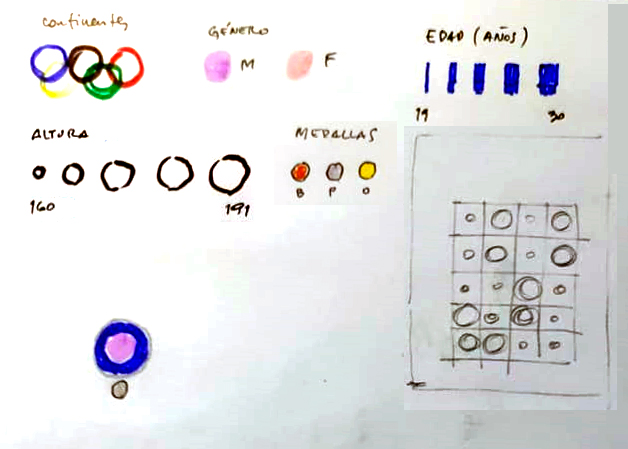 continentes
GÉNERO
M
F
EDAD (AÑOS)
19
30
ALTURA
160
191
MEDALLAS
B
P
O